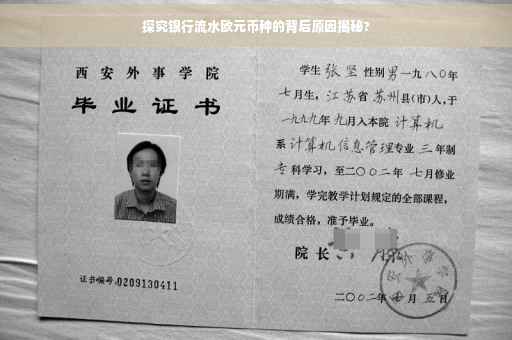 探究银行流水欧元币种的背后原因揭秘?
西安外事学院
毕业证书
证书编号:0209130411
学生 张坚 性别 男 一九八〇年
七月生, 江苏省 苏州县(市)人, 于
一九九九年 九月入本院 计算机
系 计算机信息管理专业 三 年制
专科学习, 至二〇〇二年 七月修业
期满, 学完教学计划规定的全部课程,
成绩合格, 准予毕业。
院长
二〇〇二年 月 五日